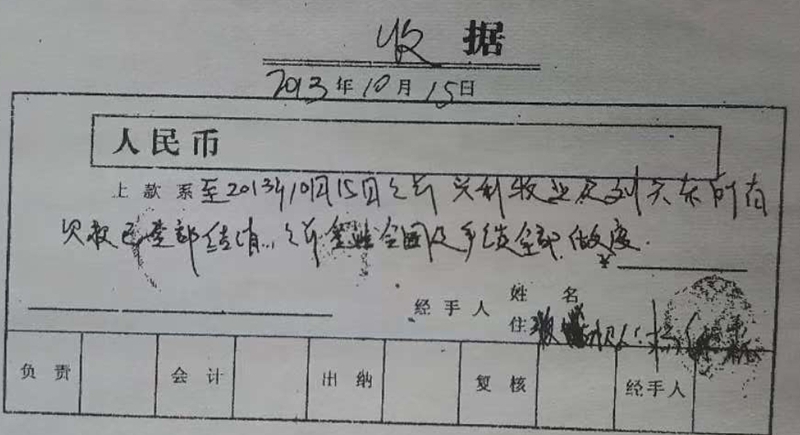 收 据
2013年10月15日
人民币
上款系至2013年10月15日之前 刘天东所有
欠款已全部结清，之前 合同及手续全部做废．
¥
经手人 姓名
住
负责 会计 出纳 复核 经手人